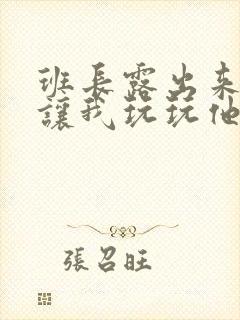 班長露出來
讓我玩玩他
張召旺